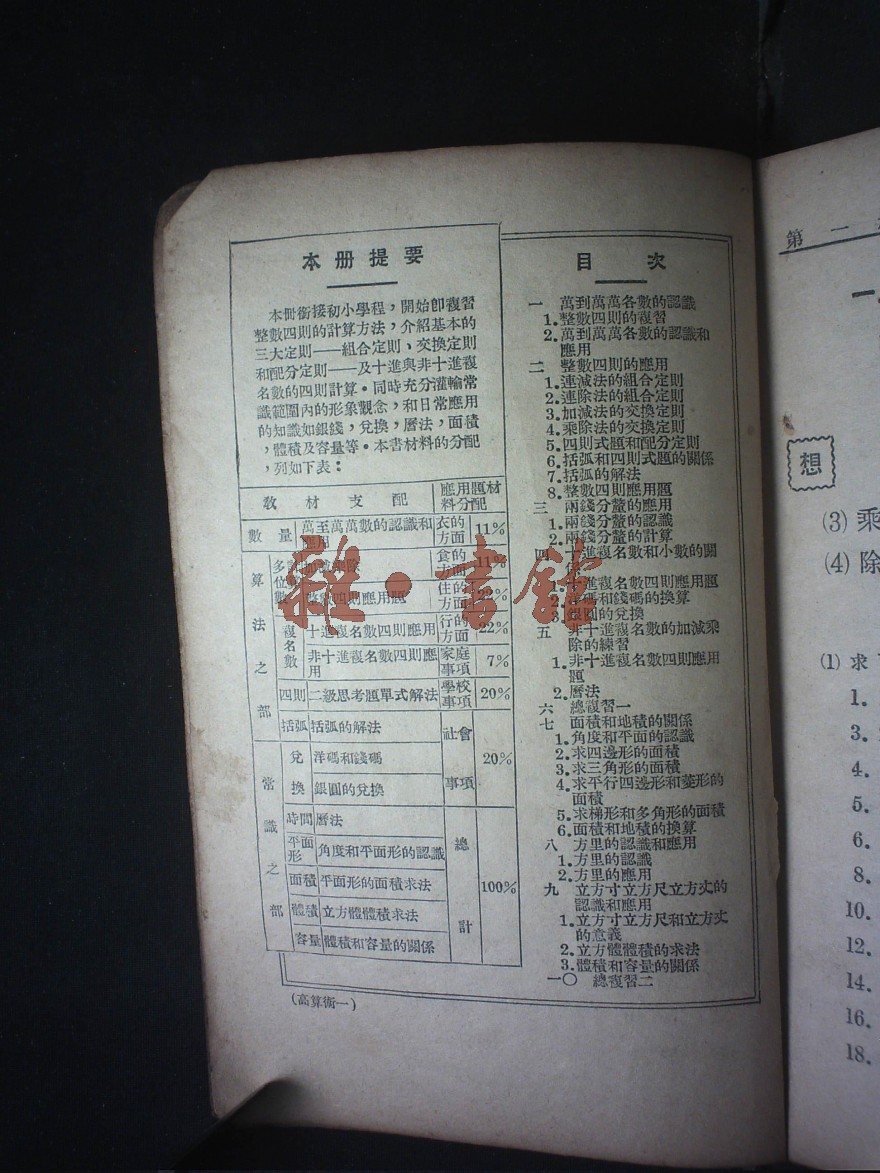 本冊提要
本冊銜接初小學程，開始卽複習
整數四則的計算方法，介紹基本的
三大定則——組合定則，交換定則
和配分定則——及十進與非十進複
名數的四則計算。同時充分灌輸常
識範圍內的形象觀念，和日常應用
的知識如銀錢，兌換，曆法，面積
，體積及容量等。本書材料的分配
，列如下表：
教材支配 應用題材料分配
數量 萬至萬萬數的認識和應用 衣的方面 11%
算法之部
多位數
食的方面 11%
整數四則應用題 住的方面
複名數 十進複名數四則應用 行的方面 22%
非十進複名數四則應用 家庭事項 7%
四則 二級思考題單式解法 學校事項 20%
括弧 括弧的解法 社會事項 20%
常識之部
兌換 洋碼和錢碼
銀圓的兌換
時間 曆法 總計 100%
平面形 角度和平面形的認識
面積 平面形的面積求法
體積 立方體體積求法
容量 體積和容量的關係
(高算術一)
目次
一 萬到萬萬各數的認識
1.整數四則的複習
2.萬到萬萬各數的認識和
應用
二 整數四則的應用
1.連減法的組合定則
2.連除法的組合定則
3.加減法的交換定則
4.乘除法的交換定則
5.四則式題和配分定則
6.括弧和四則式題的關係
7.括弧的解法
8.整數四則應用題
三 兩錢分釐的應用
1.兩錢分釐的認識
2.兩錢分釐的計算
四 十進複名數和小數的關
係
1.十進複名數四則應用題
2.洋碼和錢碼的換算
3.銀圓的兌換
五 非十進複名數的加減乘
除的練習
1.非十進複名數四則應用
題
2.曆法
六 總複習一
七 面積和地積的關係
1.角度和平面的認識
2.求四邊形的面積
3.求三角形的面積
4.求平行四邊形和菱形的
面積
5.求梯形和多角形的面積
6.面積和地積的換算
八 方里的認識和應用
1.方里的認識
2.方里的應用
九 立方寸立方尺立方丈的
認識和應用
1.立方寸立方尺和立方丈
的意義
2.立方體體積的求法
3.體積和容量的關係
一〇 總複習二
第二
一
想
(3) 乘
(4) 除
(1) 求
1.
3.
4.
5.
6.
8.
10.
12.
14.
16.
18.
雜·書館